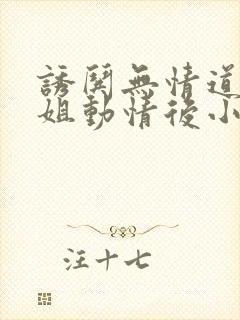 誘鬨無情道
姐動情後小
汪十七